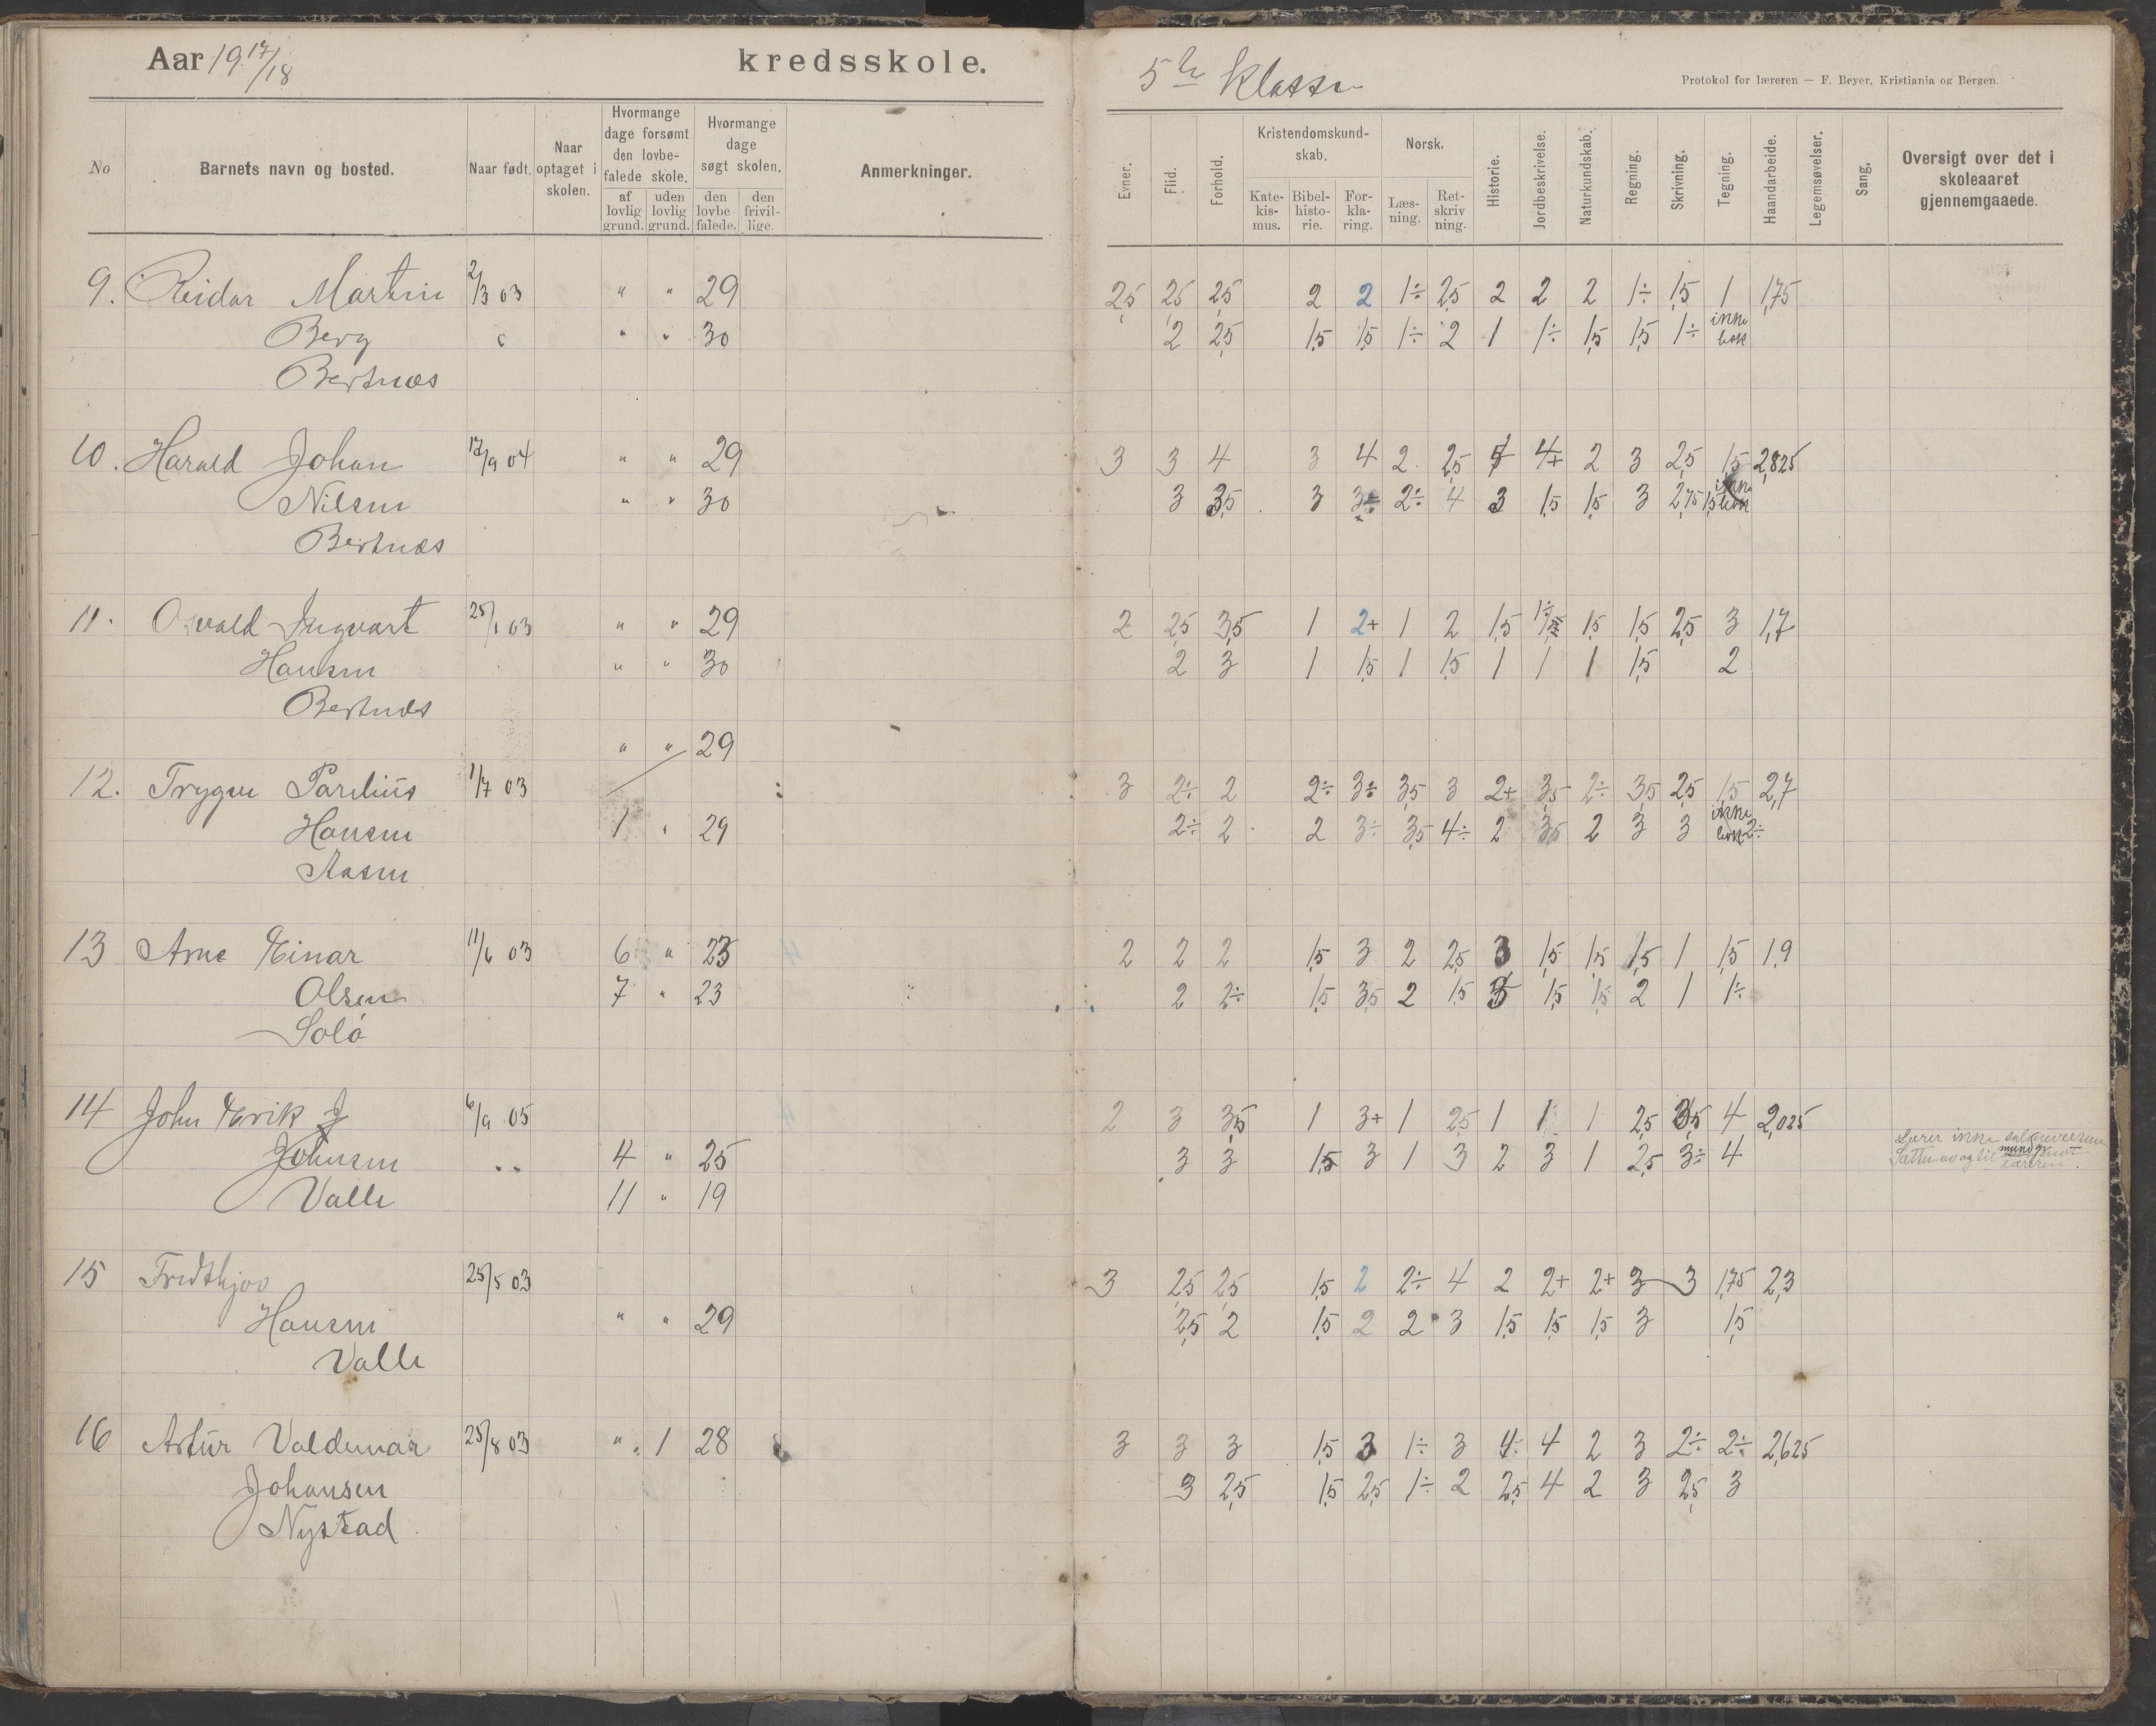 Aar 19 17/18 kredsskole.
5te Klasse
Protokol for læreren — F. Beyer, Kristiania og Bergen.
No
Barnets navn og bosted.
Naar født.
Naar optaget i skolen.
Hvormange dage forsømt den lovbefalede skole.
af lovlig grund.
uden lovlig grund.
Hvormange dage søgt skolen.
den lovbefalede.
den frivillige.
Anmerkninger.
Evner.
Flid.
Forhold.
Kristendomskundskab.
Katekismus.
Bibelhistorie.
Forklaring.
Norsk.
Læsning.
Retskrivning.
Historie.
Jordbeskrivelse.
Naturkundskab.
Regning.
Skrivning.
Tegning.
Haandarbeide.
Legemsøvelser.
Sang.
Oversigt over det i skoleaaret gjennemgaaede.
9. Reidar Martin 2/3 03 " " 29 2,5 2,5 2,5 2 2 1÷ 2,5 2 2 2 1÷ 1,5 1 1,75
Berg " " 30 2 2,5 1,5 1,5 1÷ 2 1 1÷ 1,5 1,5 1÷ ikke bok
Bertnæs
10. Harald Johan 17/9 04 " " 29 3 3 4 3 4 2 2,5 4+ 2 3 2,5 1,5 2,825
Nilsen " " 30 3 3,5 3 3÷ 2÷ 4 3 1,5 1,5 3 2,75 1,5 ikke bok
Bertnæs
11. Osvald Ingvart 25/1 03 " " 29 2 2,5 3,5 1 2+ 1 2 1,5 1÷ 1,5 1,5 2,5 3 1,7
Hansen " " 30 2 3 1 1,5 1 1,5 1 1 1 1,5 2
Bertnæs
" " 29
12. Trygve Parelius 1/7 03 3 2÷ 2 2÷ 3÷ 3,5 3 2+ 3,5 2÷ 3,5 2,5 1,5 2,7
Hansen 1 " 29 2÷ 2 2 3÷ 3,5 4÷ 2 3,5 2 3 3 ikke bok 2÷
Aasen
13 Arne Einar 11/6 03 6 " 23 2 2 2 1,5 3 2 2,5 3 1,5 1,5 1,5 1 1,5 1,9
Olsen 7 " 23 2 2÷ 1,5 3,5 2 1,5 3 1,5 1,5 2 1 1÷
Solø
14 John Erik J 6/9 05 2 3 3,5 1 3+ 1 2,5 1 1 1 2,5 3,5 4 2,025
Johnsen 4 " 25 3 3 1,5 3 1 3 2 3 1 2,5 3÷ 4
Lærer ikke salmeversene
Sætter av og til mund mot læreren.
Valle 11 " 19
15 Fridthjov 25/5 03 3 2,5 2,5 1,5 2 2÷ 4 2 2+ 2+ 3 3 1,75 2,3
Hansen " " 29 2,5 2 1,5 2 2 3 1,5 1,5 1,5 3 1,5
Valle
16 Artur Valdemar 25/8 03 " 1 28 3 3 3 1,5 3 1÷ 3 4÷ 4 2 3 2÷ 2÷ 2,625
Johansen 3 2,5 1,5 2,5 1÷ 2 2,5 4 2 3 2,5 3
Nystad